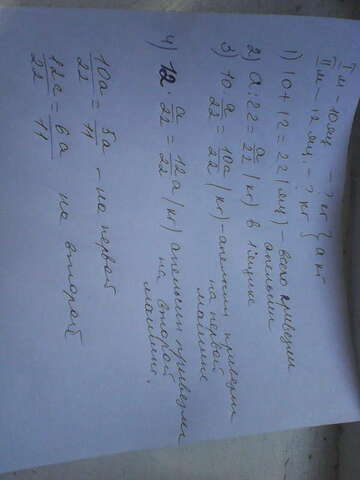 I м - 10 ящ - ? кг } а кг
II м - 12 ящ. - ? кг
1) 10 + 12 = 22 (ящ) - всего привезли
апельсин
2) а : 22 = а/22 (кг) в 1 ящике
3) 10 · а/22 = 10а/22 (кг) - апельсин привезли
на первой
машине
4) 12 · а/22 = 12а/22 (кг) апельсин привезли
на второй
машине.
10а/22 = 5а/11 - на первой
12а/22 = 6а/11 на второй